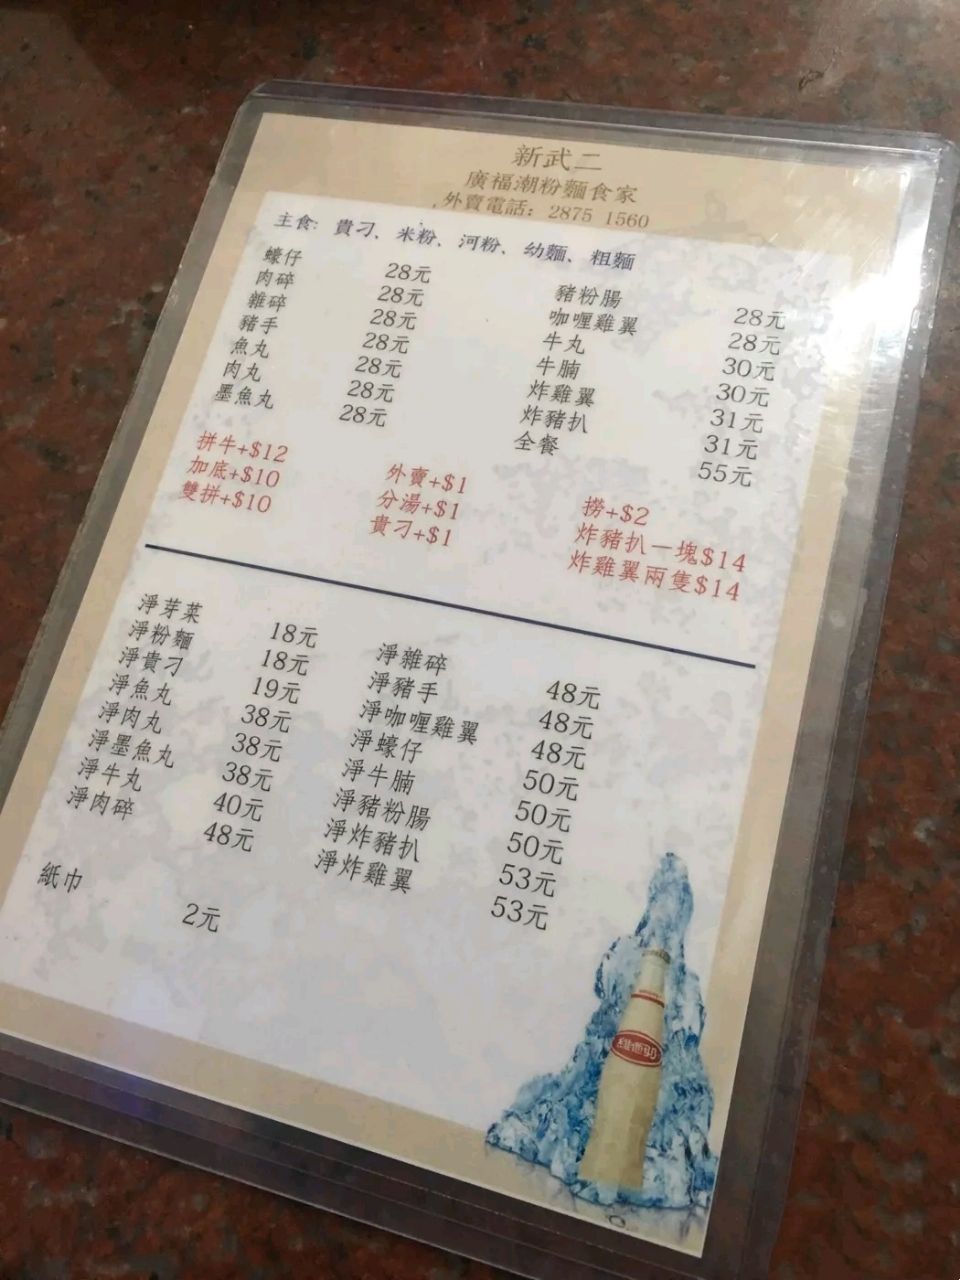 新武二
廣福潮粉麵食家
外賣電話: 2875 1560
主食: 貴刁、米粉、河粉、幼麵、粗麵
蠔仔 28元
肉碎 28元
雜碎 28元
豬手 28元
魚丸 28元
肉丸 28元
墨魚丸 28元
豬粉腸 28元
咖喱雞翼 28元
牛丸 30元
牛腩 30元
炸雞翼 31元
炸豬扒 31元
全餐 55元
拼牛+$12
加底+$10
雙拼+$10
外賣+$1
分湯+$1
貴刁+$1
撈+$2
炸豬扒一塊$14
炸雞翼兩隻$14
淨芽菜 18元
淨粉麵 18元
淨貴刁 19元
淨魚丸 38元
淨肉丸 38元
淨墨魚丸 38元
淨牛丸 40元
淨肉碎 48元
淨雜碎 48元
淨豬手 48元
淨咖喱雞翼 48元
淨蠔仔 50元
淨牛腩 50元
淨豬粉腸 50元
淨炸豬扒 53元
淨炸雞翼 53元
紙巾 2元
維他奶